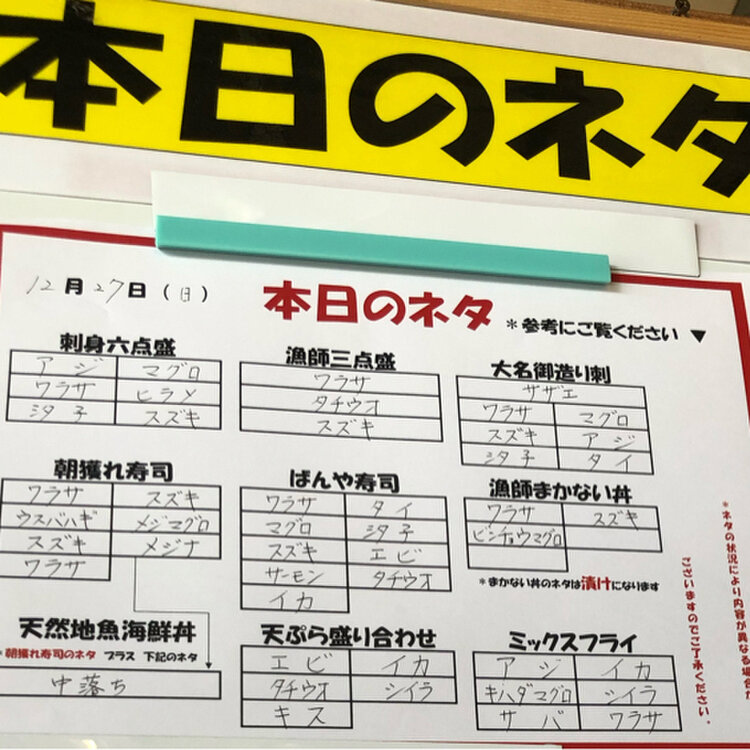 本日のネタ
12月27日(日)
本日のネタ
*参考にご覧ください▼
刺身六点盛
アジ マグロ
ワラサ ヒラメ
汐子 スズキ
漁師三点盛
ワラサ
タチウオ
スズキ
大名御造り刺
サザエ
ワラサ マグロ
スズキ アジ
汐子 タイ
朝獲れ寿司
ワラサ スズキ
ウスバハギ メジマグロ
スズキ メジナ
ワラサ
ばんや寿司
ワラサ タイ
マグロ 汐子
スズキ エビ
サーモン タチウオ
イカ
漁師まかない丼
ワラサ スズキ
ビンチョウマグロ
*まかない丼のネタは漬けになります
天然地魚海鮮丼
*朝獲れ寿司のネタ プラス 下記のネタ
中落ち
天ぷら盛り合わせ
エビ イカ
タチウオ シイラ
キス
ミックスフライ
アジ イカ
キハダマグロ シイラ
サバ ワラサ
*ネタの状況により内容が異なる場合が
ございますのでご了承ください。